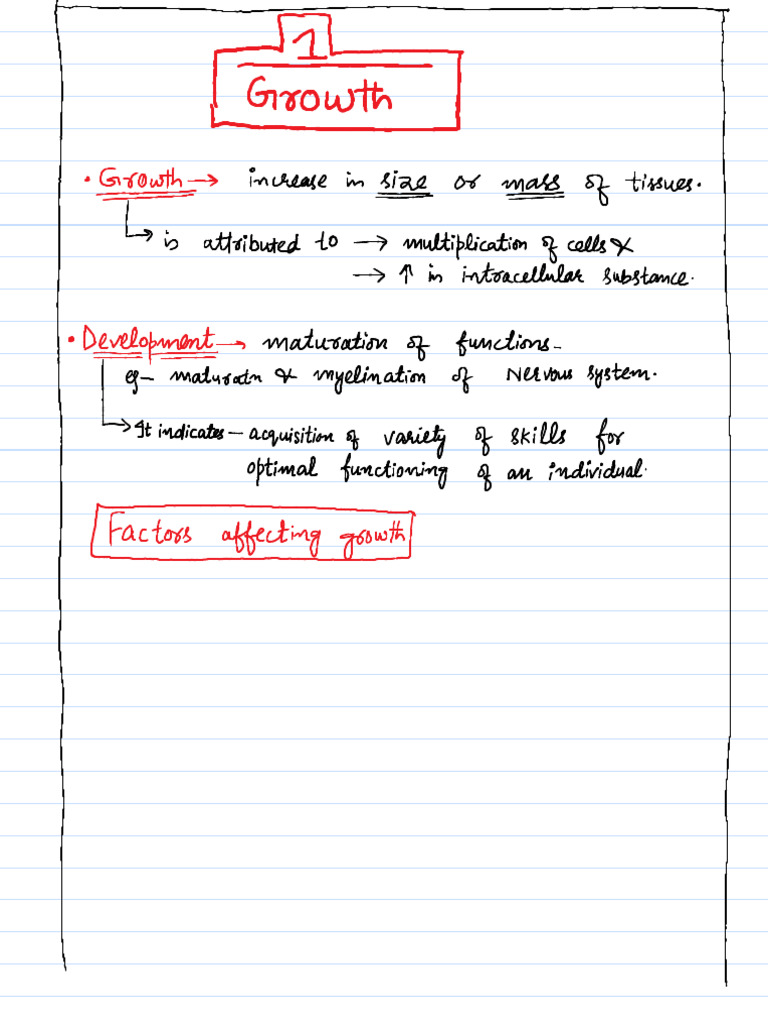 1
Growth
• Growth → increase in size or mass of tissues.
↳ is attributed to → multiplication of cells &
→ ↑ in intracellular substance.
• Development → maturation of functions –
eg – maturatn & myelination of Nervous system.
↳ It indicates – acquisition of variety of skills for
optimal functioning of an individual.
Factors affecting growth